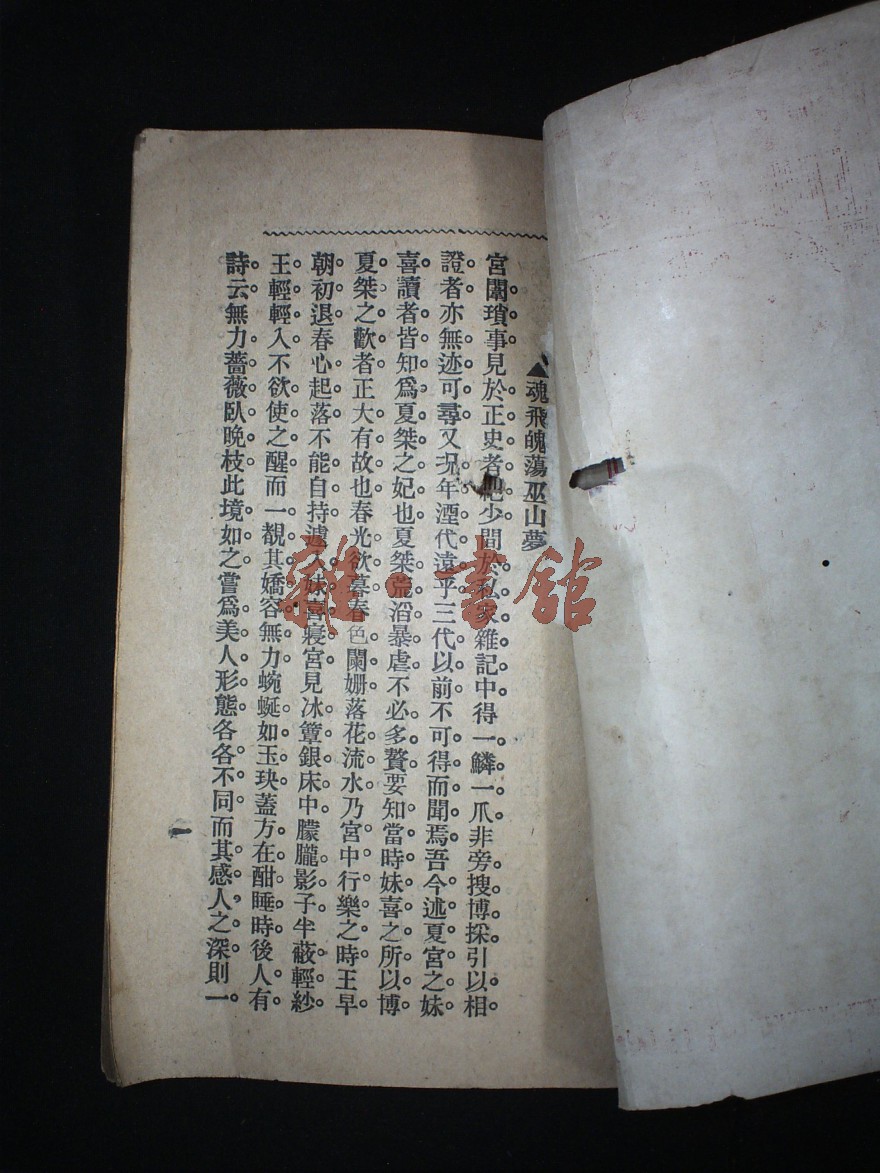 ▲魂飛魄蕩巫山夢
宮闈瑣事見於正史者絕少間於私家雜記中得一鱗一爪非旁搜博採引以相
證者亦無迹可尋又况年湮代遠乎三代以前不可得而聞焉吾今述夏宮之妹
喜讀者皆知爲夏桀之妃也夏桀荒滔暴虐不必多贅要知當時妹喜之所以博
夏桀之歡者正大有故也春光欲暮春色闌姍落花流水乃宮中行樂之時王早
朝初退春心起落不能自持遽入妹喜寢宮見冰簟銀床中朦朧影子半蔽輕紗
王輕輕入不欲使之醒而一覩其嬌容無力蜿蜒如玉玦蓋方在酣睡時後人有
詩云無力薔薇臥晚枝此境如之嘗爲美人形態各各不同而其感人之深則一
一
雜·書館